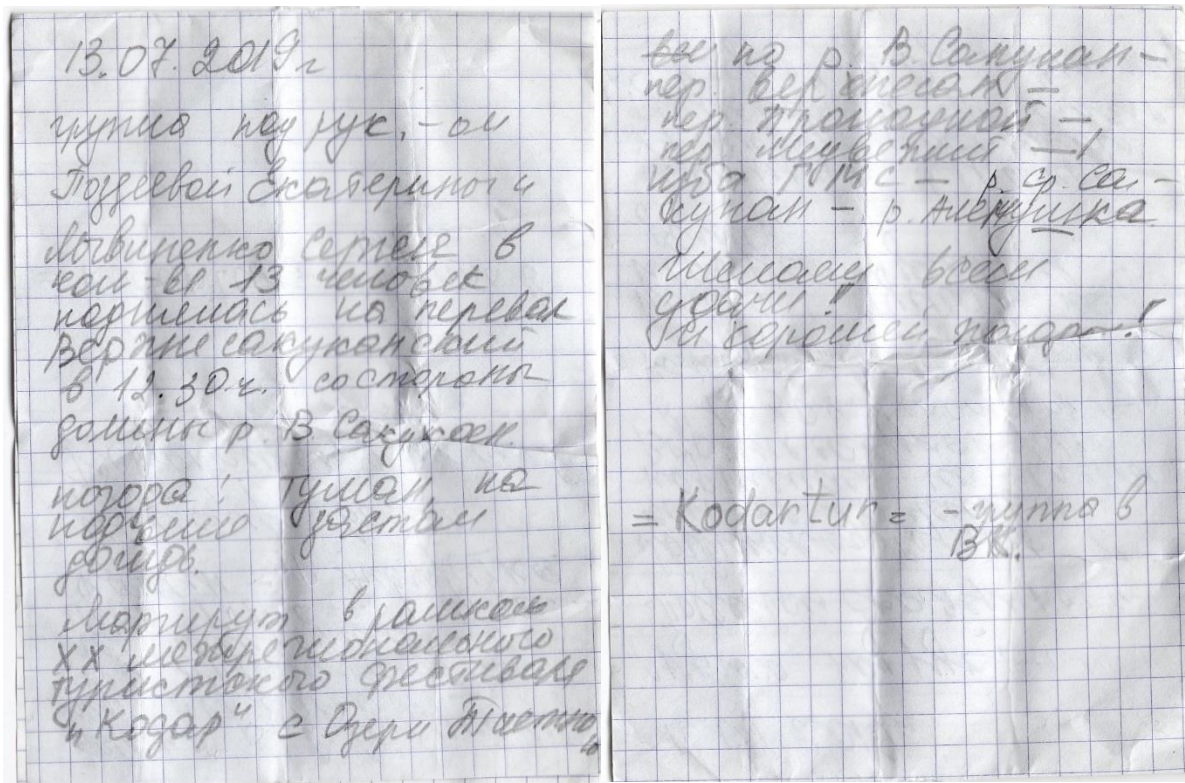 13.07.2019 г
группа под рук.-ом
Поздеевой Екатерины и
Литвиненко Сергея в
кол-ве 13 человек
поднялась на перевал
Верхнесакуканский
в 12.30 ч. со стороны
долины р. В Сакукан.
погода: туман, на
подъеме застал
дождь.
Маршрут в рамках
XX межрегионального
туристского фестиваля
"Кодар" с Озера
по р. В. Сакукан –
пер. –
пер. Проходной –
пер. Медвежий –
изба ГМС – р. Ср. Са-
кукан – р.
Желаем всем
удачи!!
и хорошей погоды!!
= Kodartur = – группа в
ВК.